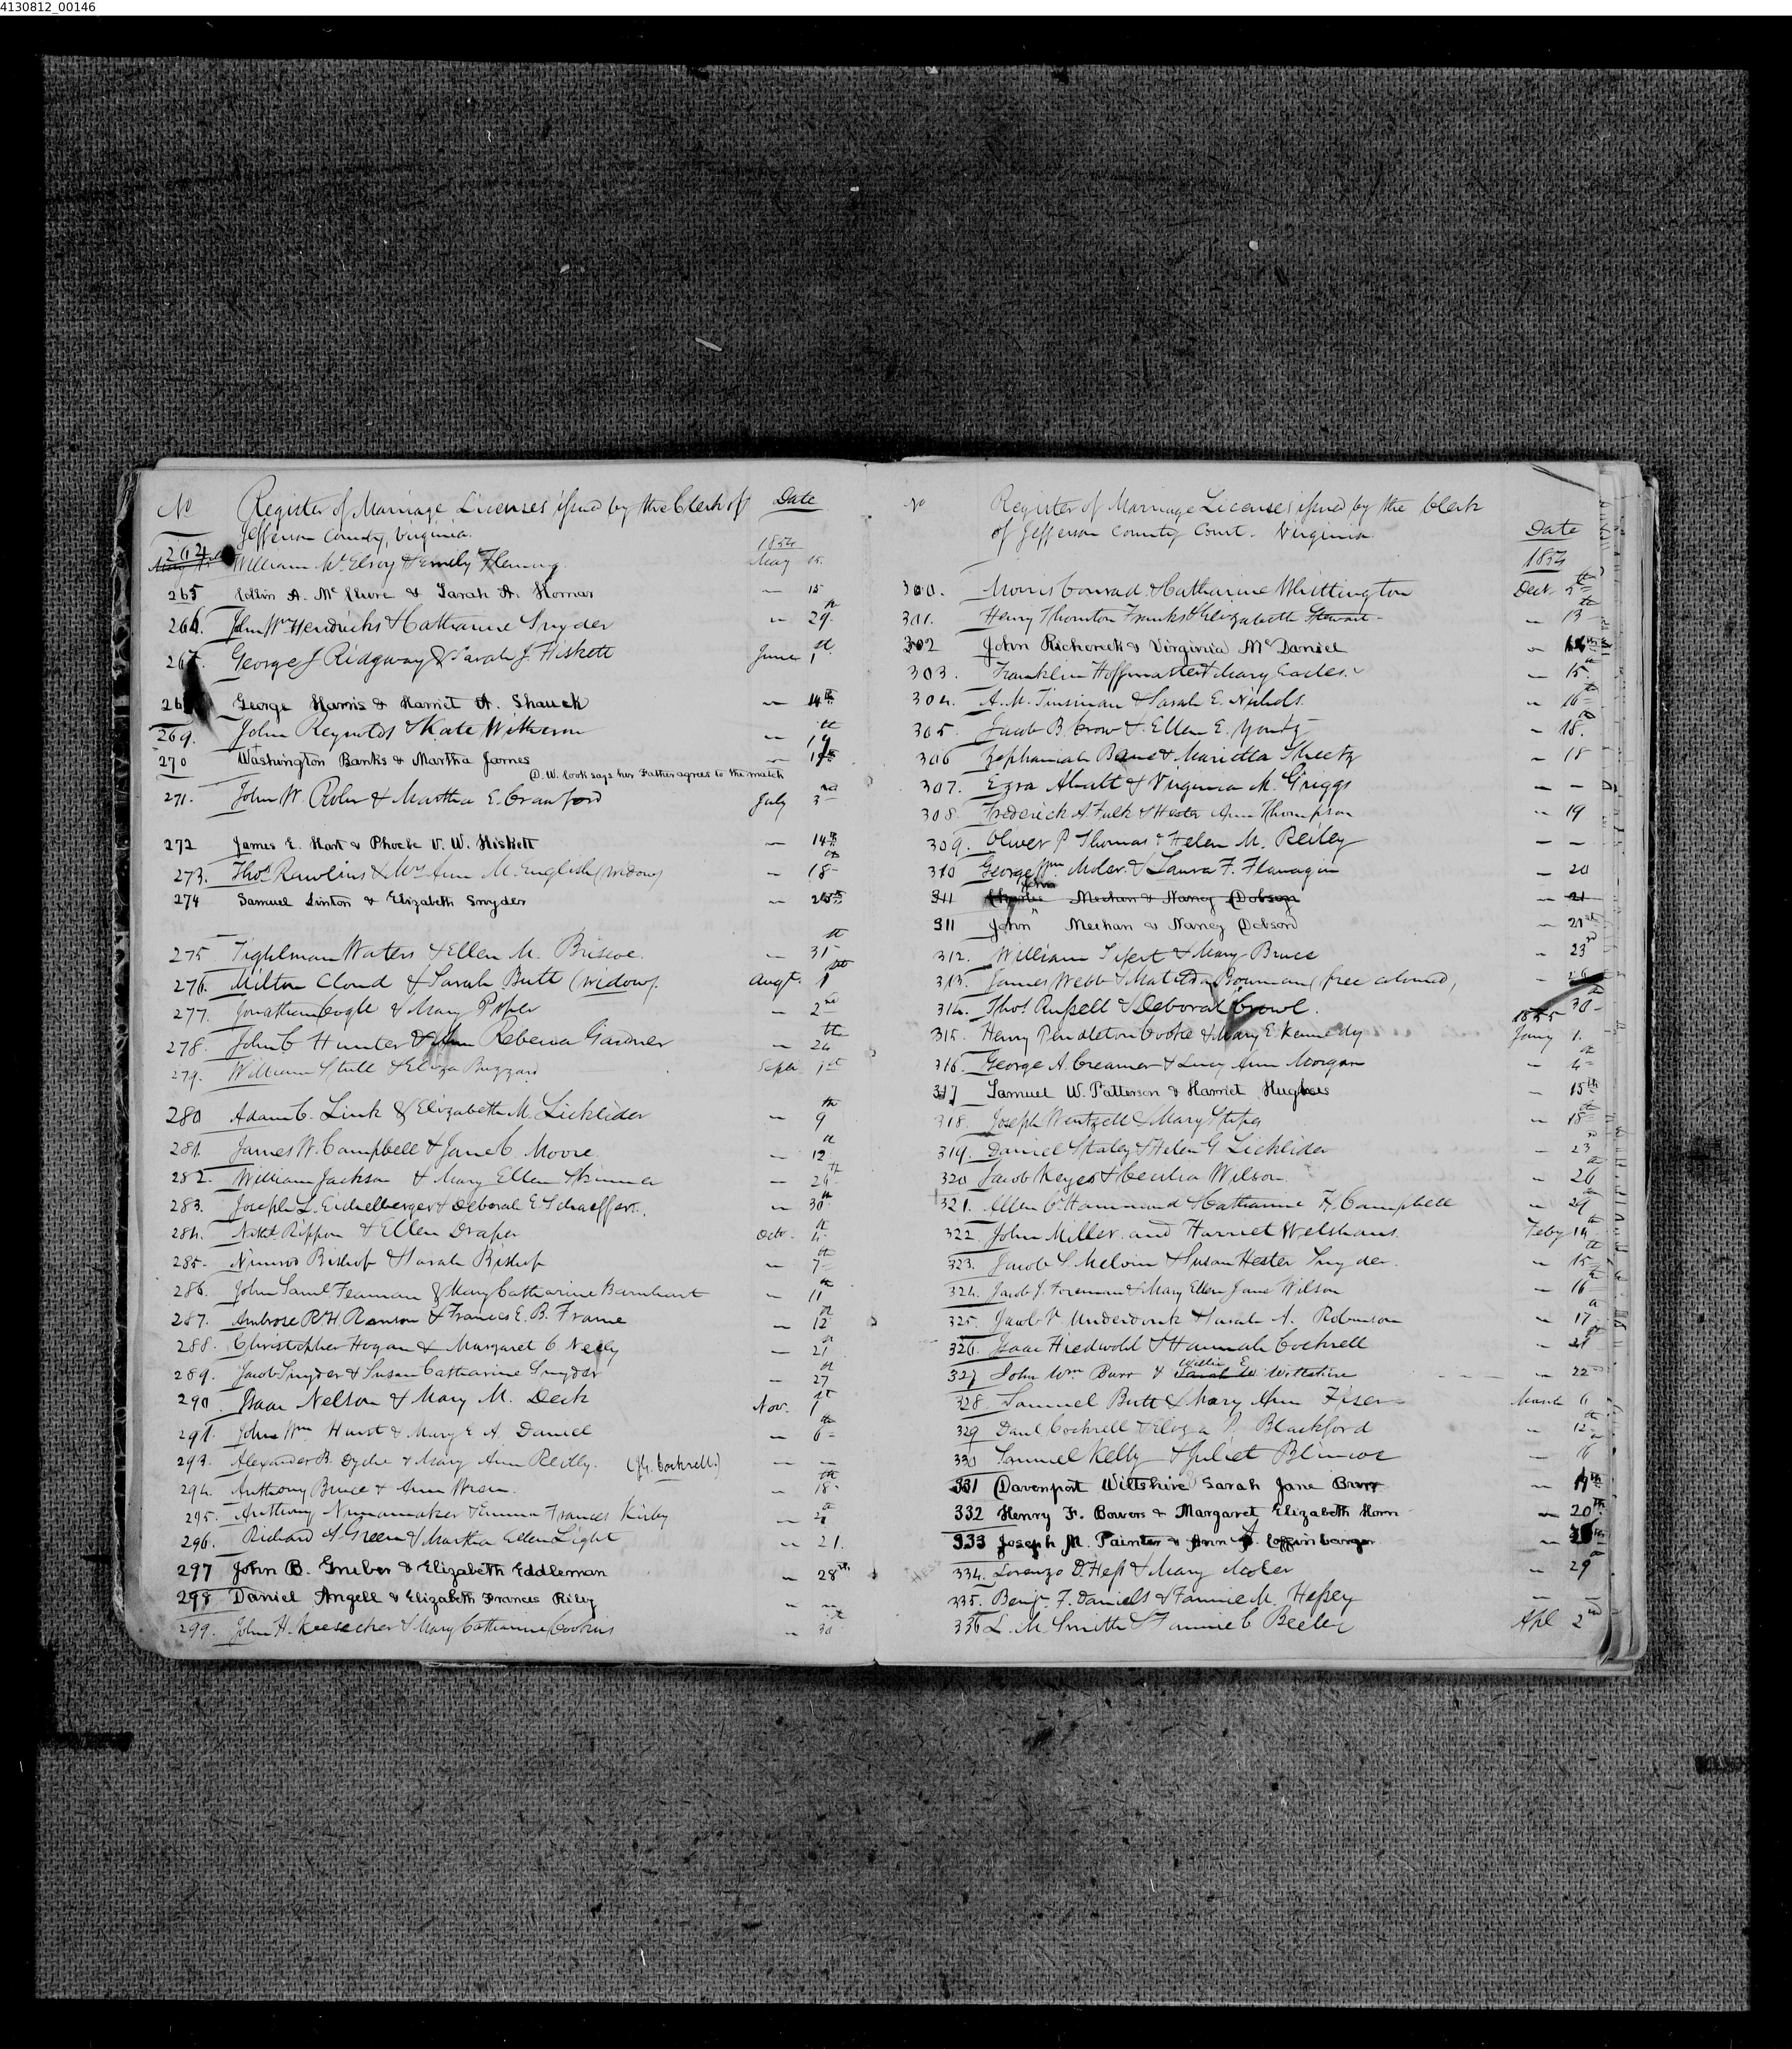 4130812_00146
No Register of Marriage Licenses issued by the Clerk of Date
Jefferson County, Virginia.
264 William McElroy & Emily Fleming 1854 May 05.
265 A. McClure & Sarah A. Homar — 15
266. John Wm Hendricks & Catharine Snyder — 29th
267. George J Ridgway & Sarah J. Hiskett June 1st
George Harris & Harriet A. Shauck — 14th
269. John Reynolds & Kate Witherow —
270 Washington Banks & Martha James — 17th
D. W. Cook says her Father agrees to the match
271. John W. Rohr & Martha E. Crawford July 3rd
272 James E. Hart & Phoebe V. W. Hiskett — 14th
273. Thos Rawlins & Mrs Ann M. English (widow) — 18th
274 Samuel Linton & Elizabeth Snyder — 25th
275. Tighlman Waters & Ellen M. Briscoe. — 31st
276. Milton Cloud & Sarah Butt (widow). Augt. 1st
277. Jonathan Cogle & Mary Piper — 2nd
278. John C Hunter & Ann Rebecca Gardner — 24th
279. William Stull & Eliza Buzzard Septr 1st
280 Adam C. Link & Elizabeth M. Licklider — 9th
281. James W. Campbell & Jane C. Moore. — 12th
282. William Jackson & Mary Ellen Skinner — 26th
283. Joseph L. Eichelberger & Deborah E Schaeffer. — 30th
284. Nathl. Rippon & Ellen Draper Octr. 4th
285. Nimrod Bishop & Sarah Bishop — 7th
286. John Saml Feaman & Mary Catharine Barnhart — 11th
287. Ambrose R. H. Ranson & Frances E. B. Frame — 12th
288. Christopher Hogan & Margaret C Neely — 21st
289. Jacob Snyder & Susan Catharine Snyder — 27th
290. Isaac Nelson & Mary M. Deck Nov. 1st
291. John Wm Hurst & Mary E A. Daniel — 6th
293. Alexander B. Dyche & Mary Ann Reilly. Cockrell.) — —
294. Anthony Bruce & Ann Wren. — 18th
295. Anthony Nunamaker & Emma Frances Kirby —
296. Richard Green & Martha Ellen Light — 21.
297 John B. Gruber & Elizabeth Eddleman — 28th
298 Daniel Angell & Elizabeth Frances Riley — —
299. John H. Keesecker & Mary Catharine Cookus — 30th
No Register of Marriage Licenses issued by the Clerk
of Jefferson County Court. Virginia Date
1854
300. Morris Conrad & Catharine Whittington Decr. 5th
301. Henry Thornton Franks & Elizabeth Stewart — 13th
302 John Richcreek & Virginia McDaniel — 14th
303. Franklin Hoffmaster & Mary Eacles. — 15th
304. A. M. Tinsman & Sarah E. Nichols. — 16th
305. Jacob B. Crow & Ellen E. Yontz — 18th
306 Zephaniah Bane & Marietta Sheetz — 18
307. Ezra Aualt & Virginia M. Griggs — —
308. Frederick A Fulk & Hester Ann Thompson — 19
309. Oliver P Thomas & Helen M. Reiley — —
310 George Wm Moler & Laura F. Flanagin — 20
311 Charles John Meehan & Nancy Dobson — 21
311 John Meehan & Nancy Dobson — 21st
312. William Sifert & Mary Bruce — 23rd
313. James Webb & Matilda Bowman (free coloured) — 26
314. Thos Russell & Deborah Crowl. — 30th
1855
315. Henry Pendleton Cooke & Mary E. Kennedy Jany 1.
316. George A. Creamer & Lucy Ann Morgan — 4th
317 Samuel W. Patterson & Harriet Hughes — 15th
318. Joseph Wentzell & Mary Stipes — 18th
319. Daniel Staley & Helen G. Licklider — 23rd
320 Jacob Keyes & Cecelia Wilson. — 26th
321. Allen C. Hammond & Catharine F. Campbell — 29th
322. John Miller and Harriet Welshans. Feby 14th
323. Jacob S. Melvin & Susan Hester Snyder. — 15th
324. Jacob J. Foreman & Mary Ellen Jane Wilson — 16th
325. Jacob V Underdonk & Sarah A. Robinson — 17th
326. Isaac Hiedwohl & Hannah Cockrell — 21st
Willie E.
327 John Wm Burr & Sarah W Wiltshire — 22nd
328. Samuel Butt & Mary Ann Fiser March 6
329 Danl Cockrell & Eliza P. Blackford — 12th
330 Samuel Kelly & Juliet Blincoe — 16th
331 Davenport Wiltshire & Sarah Jane Burr — 19th
332 Henry F. Bowers & Margaret Elizabeth Horn — 20th
333 Joseph M. Painter & Ann Coffinbarger —
334. Lorenzo D. Hess & Mary Moler — 29th
335. Benj. F. Daniels & Fannie M. Hessey — —
336 L. M. Smith & Fannie C Beeler Apl 2nd